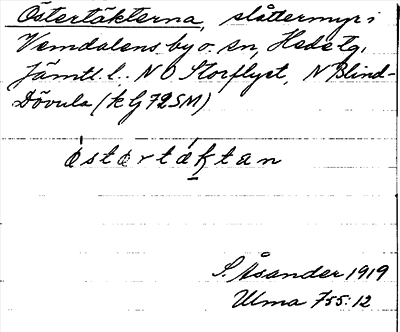 Östertäkterna, slåttermyr i
Vemdalens by o. sn, Hede tg,
Jämtl. l. NO Storflyet, N Blind-
Dövula (k G 72 SM)
östərtäktan
S. Åsander 1919
Ulma 755:12